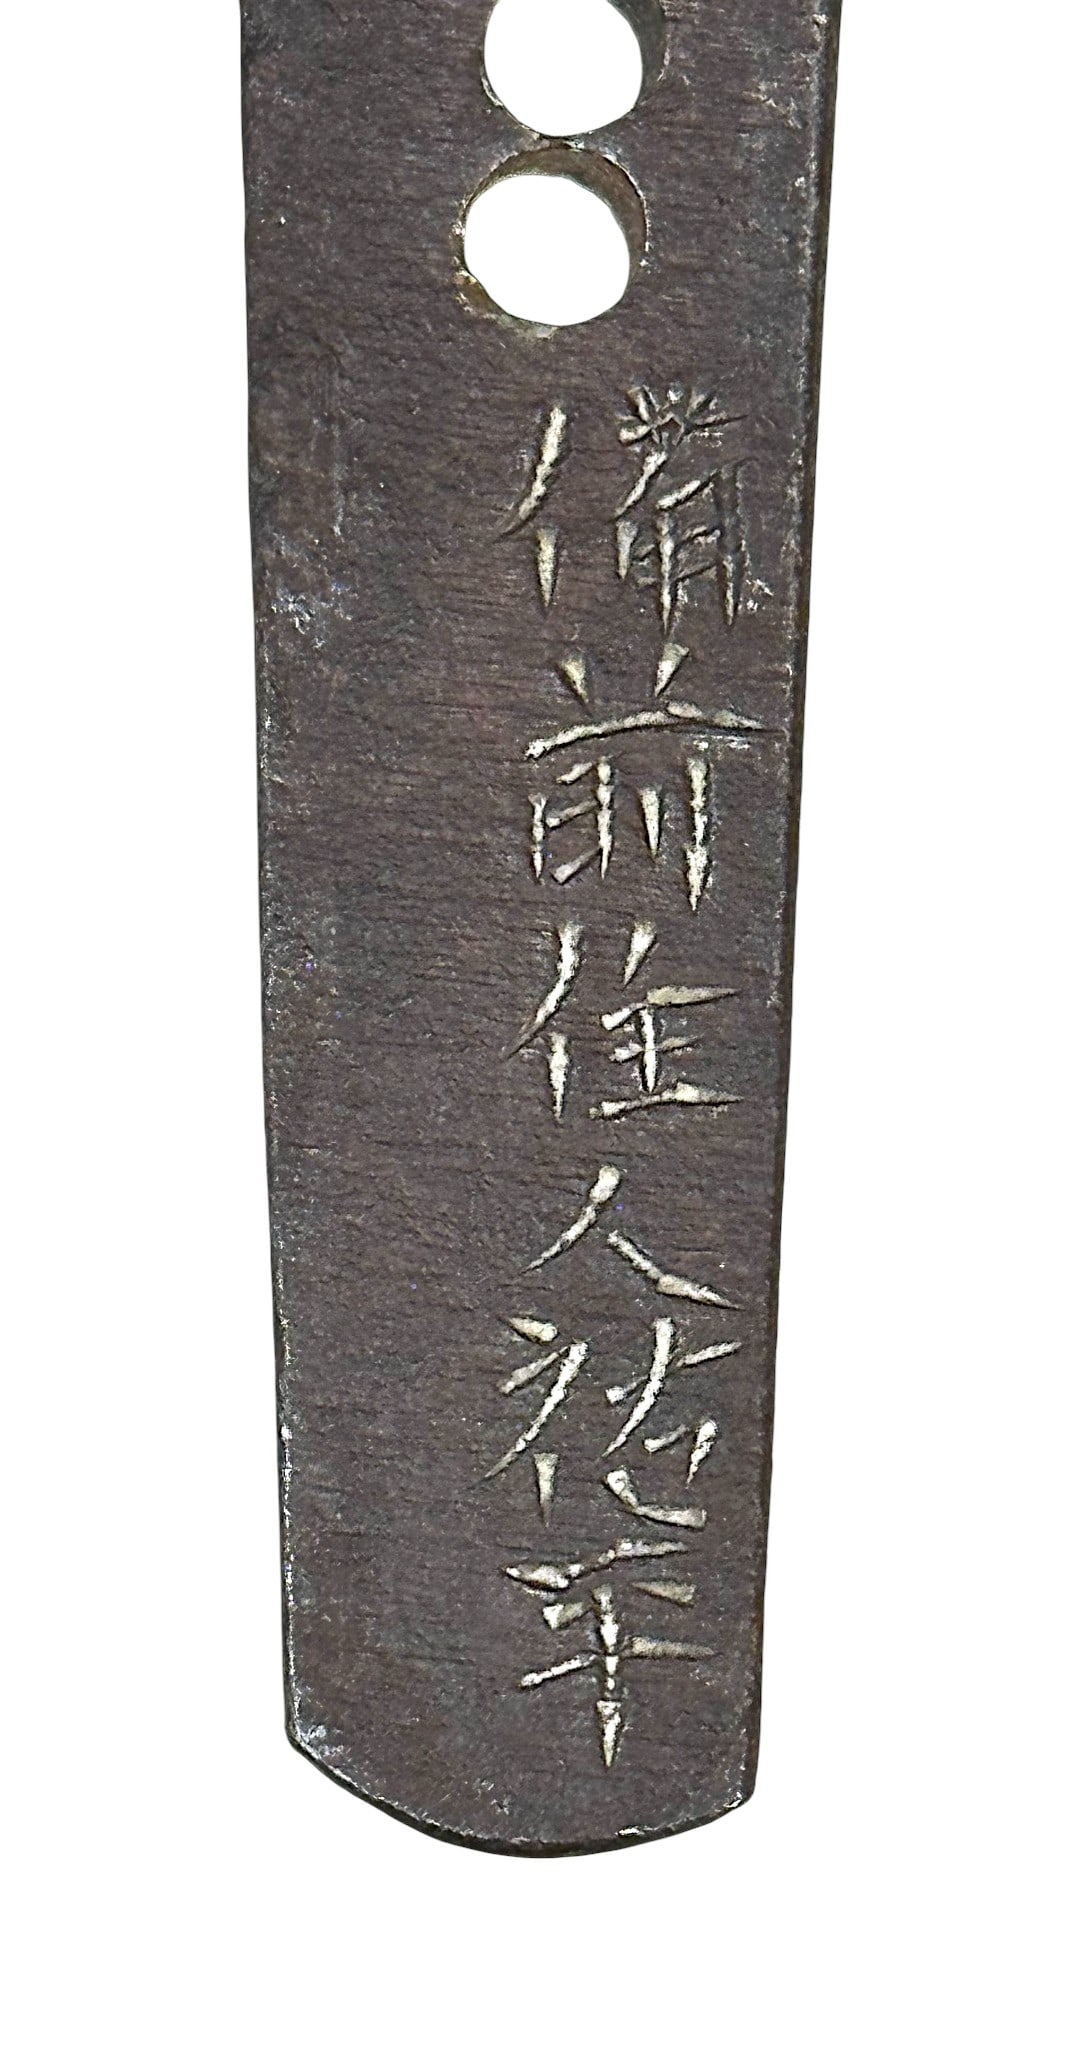 備前住人祐平